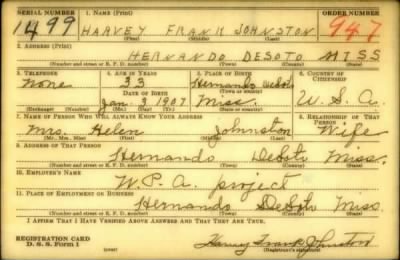 SERIAL NUMBER 1. NAME (Print) ORDER NUMBER
1499 HARVEY FRANK JOHNSTON 947
(First) (Middle) (Last)
2. ADDRESS (Print)
HERNANDO DESOTO MISS
(Number and street or R. F. D. number) (Town) (County) (State)
3. TELEPHONE 4. AGE IN YEARS 5. PLACE OF BIRTH 6. COUNTRY OF CITIZENSHIP
None 33 Hernando
DATE OF BIRTH (Town or county)
Jan. 3 1907 Miss. U.S.A.
(Exchange) (Number) (Mo.) (Day) (Yr.) (State or country)
7. NAME OF PERSON WHO WILL ALWAYS KNOW YOUR ADDRESS 8. RELATIONSHIP OF THAT PERSON
Mrs. Helen Johnston Wife
(Mr., Mrs., Miss) (First) (Middle) (Last)
9. ADDRESS OF THAT PERSON
Hernando DeSoto Miss.
(Number and street or R. F. D. number) (Town) (County) (State)
10. EMPLOYER'S NAME
W.P.A. project
11. PLACE OF EMPLOYMENT OR BUSINESS
Hernando DeSoto Miss.
(Number and street or R. F. D. number) (Town) (County) (State)
I AFFIRM THAT I HAVE VERIFIED ABOVE ANSWERS AND THAT THEY ARE TRUE.
REGISTRATION CARD
D. S. S. Form 1 (over) Harvey Frank Johnston
(Registrant's signature)